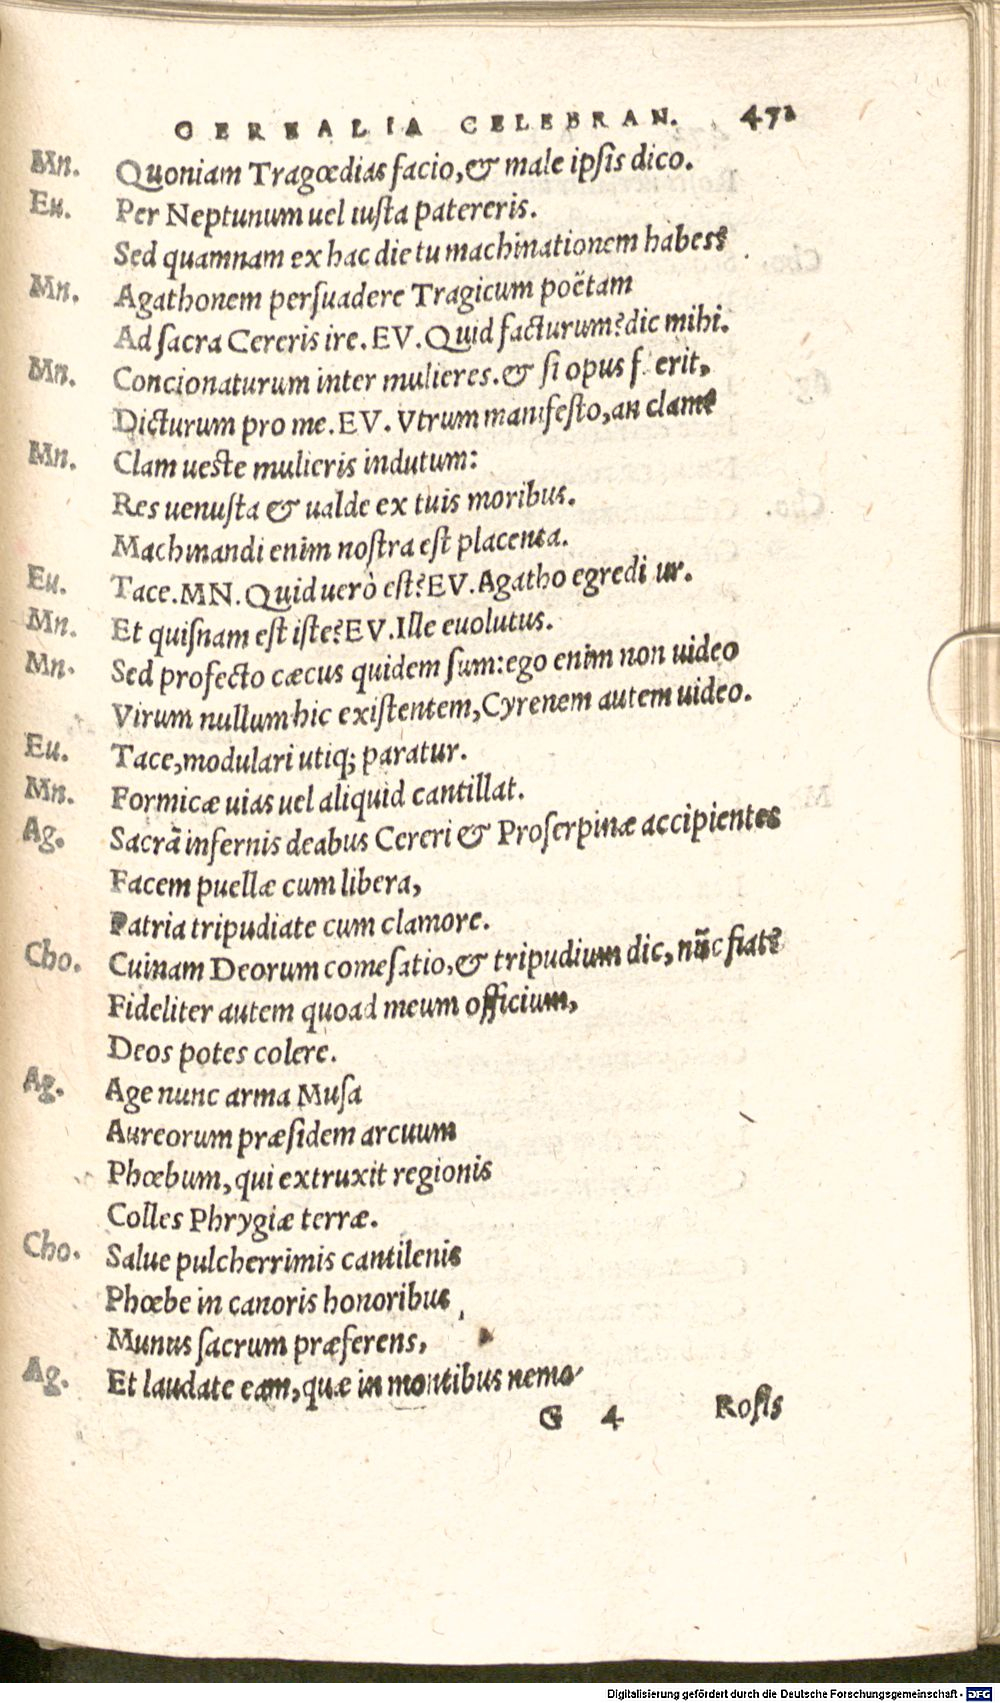 CEREALIA CELEBRAN. 471
Mn. Quoniam Tragœdias facio, & male ipsis dico.
Eu. Per Neptunum uel iusta patereris.
Sed quamnam ex hac die tu machinationem habes?
Mn. Agathonem persuadere Tragicum poëtam
Ad sacra Cereris ire. EV. Quid facturum? dic mihi.
Mn. Concionaturum inter mulieres. & si opus f erit,
Dicturum pro me. EV. Vtrum manifesto, an clam?
Mn. Clam ueste mulieris indutum:
Res uenusta & ualde ex tuis moribus.
Machinandi enim nostra est placenta.
Eu. Tace. MN. Quid uerò est? EV. Agatho egredi ur.
Mn. Et quisnam est iste? EV. Ille euolutus.
Mn. Sed profecto cæcus quidem sum: ego enim non uideo
Virum nullum hic existentem, Cyrenem autem uideo.
Eu. Tace, modulari utiq; paratur.
Mn. Formicæ uias uel aliquid cantillat.
Ag. Sacrã infernis deabus Cereri & Proserpinæ accipientes
Facem puellæ cum libera,
Patria tripudiate cum clamore.
Cho. Cuinam Deorum comesatio, & tripudium dic, nũc fiat?
Fideliter autem quoad meum officium,
Deos potes colere.
Ag. Age nunc arma Musa
Aureorum præsidem arcuum
Phœbum, qui extruxit regionis
Colles Phrygiæ terræ.
Cho. Salue pulcherrimis cantilenis
Phœbe in canoris honoribus
Munus sacrum præferens,
Ag. Et laudate eam, quæ in montibus nemo-
G 4 Rosis
Digitalisierung gefördert durch die Deutsche Forschungsgemeinschaft - DFG